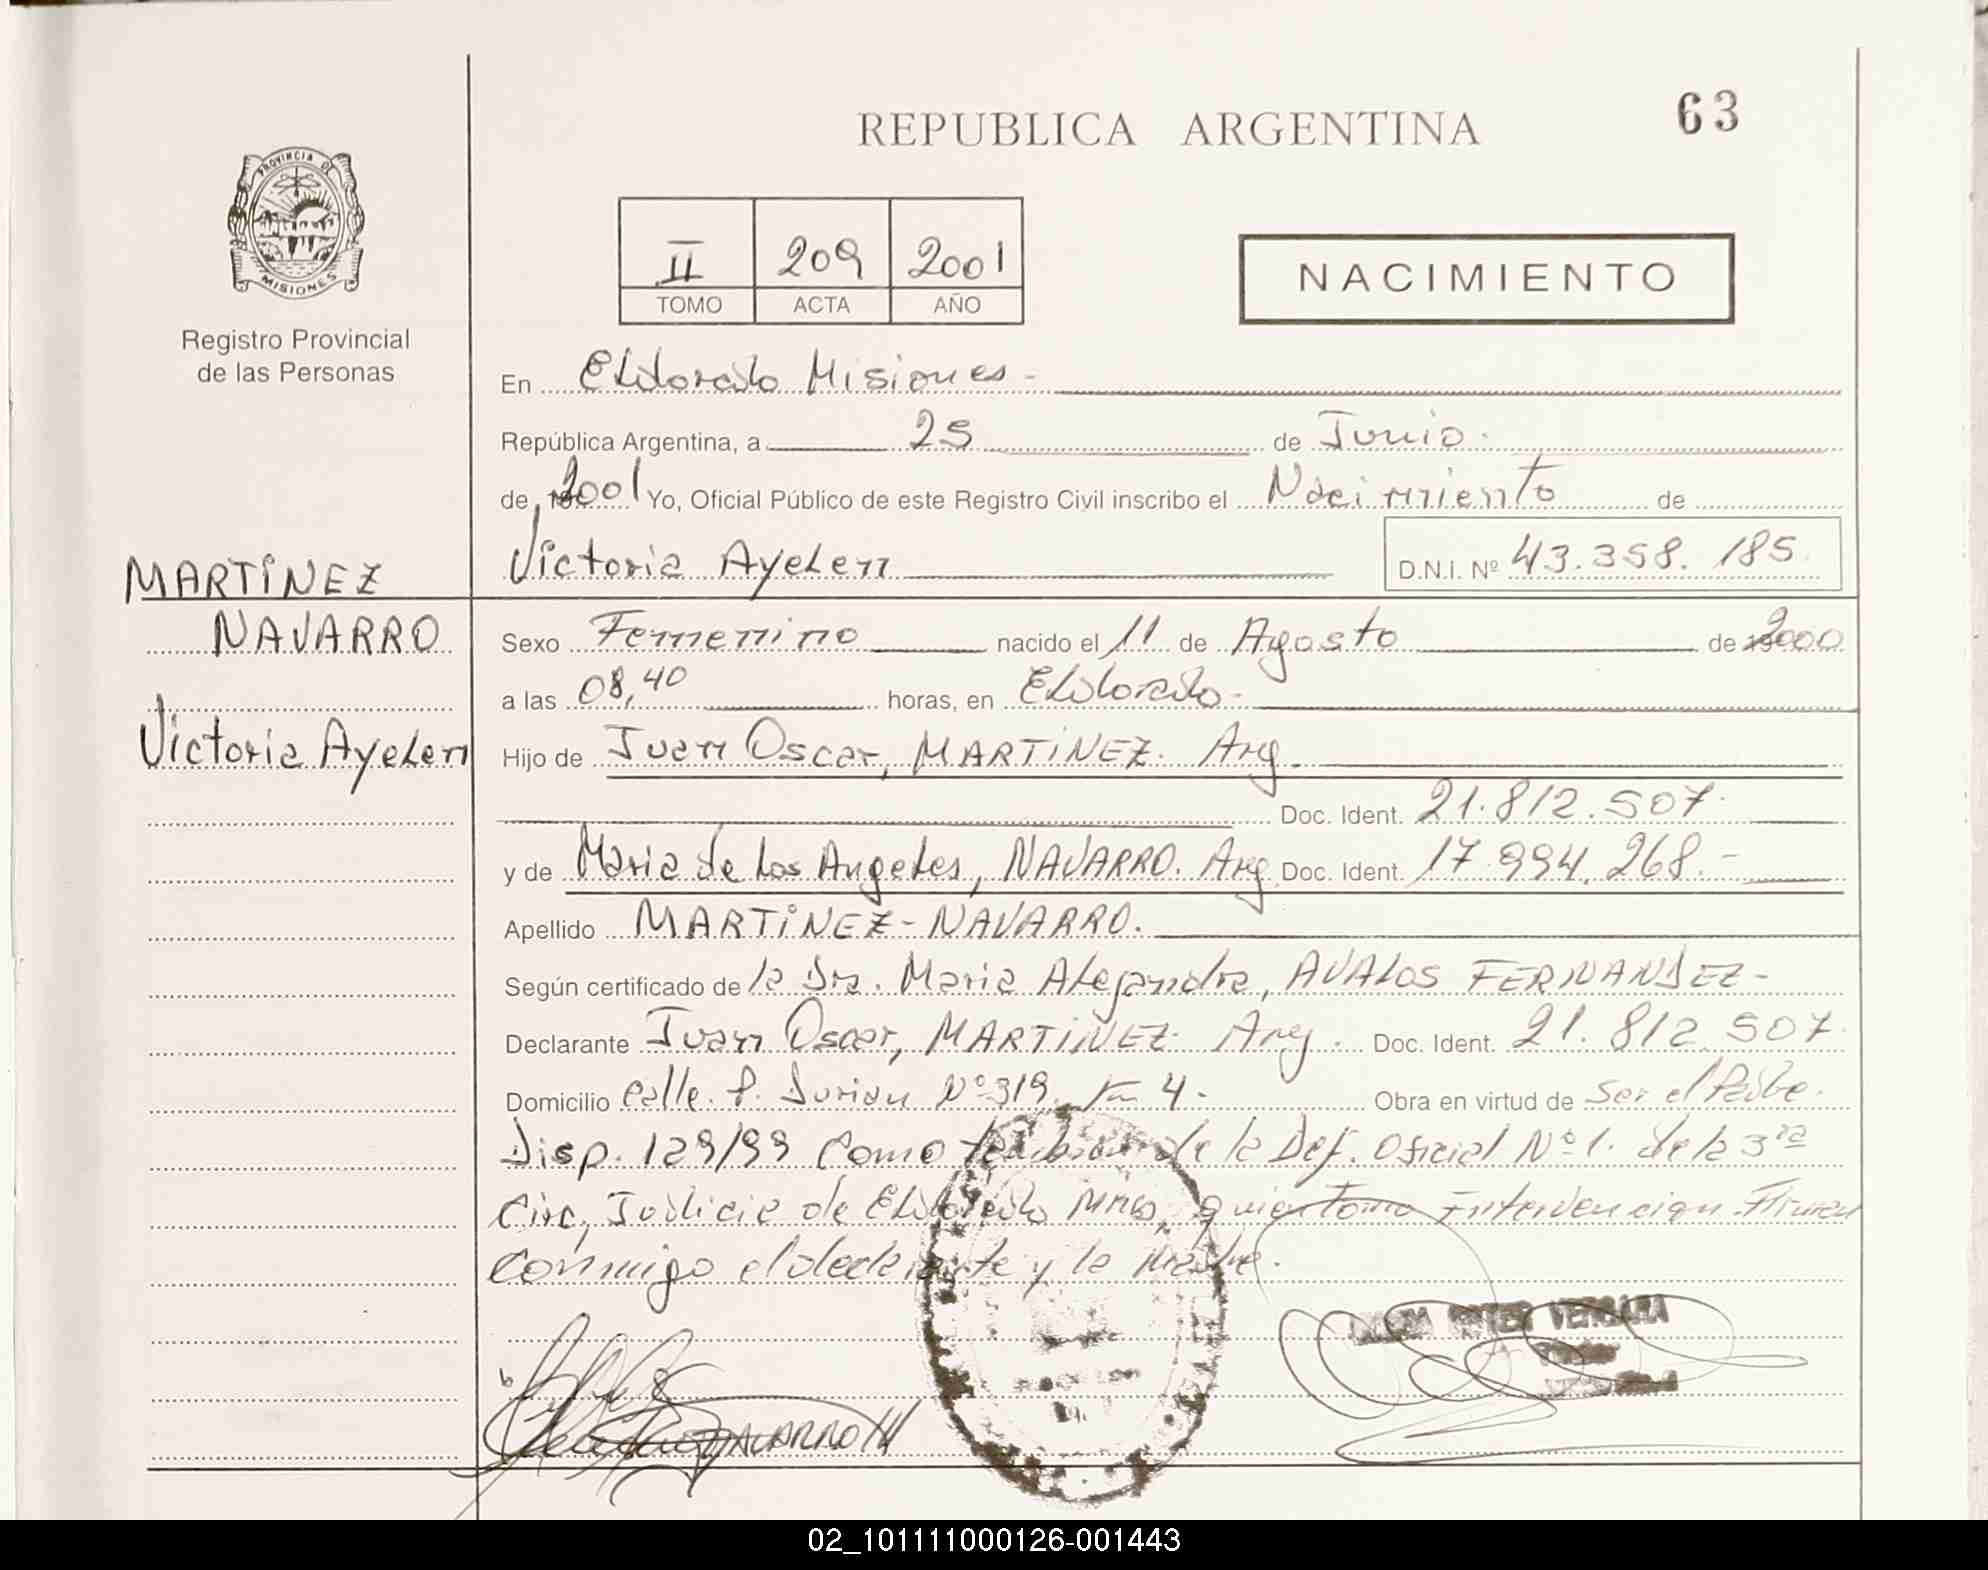 63
REPUBLICA ARGENTINA
PROVINCIA DE
MISIONES
Registro Provincial
de las Personas
II 209 2001
TOMO ACTA AÑO
NACIMIENTO
En Eldorado Misiones -
República Argentina, a 25 de Junio.
de 2001 Yo, Oficial Público de este Registro Civil inscribo el Nacimiento de
Victoria Ayelen D.N.I. Nº 43.358.185.
MARTINEZ
NAVARRO
Victoria Ayelen
Sexo Femenino nacido el 11 de Agosto de 2000
a las 08,40 horas, en Eldorado -
Hijo de Juan Oscar, MARTINEZ. Arg.
Doc. Ident. 21.812.507.
y de Maria de Los Angeles, NAVARRO. Arg Doc. Ident. 17.994.268.-
Apellido MARTINEZ - NAVARRO.
Según certificado de la Dra. Maria Alejandra, AVALOS FERNANDEZ -
Declarante Juan Oscar, MARTINEZ. Arg. Doc. Ident. 21.812.507.
Domicilio Calle. P. Nº 319. Km 4. - Obra en virtud de Ser el Padre.
Disp. 129/99 Como de la Def. Oficial Nº 1. de la 3ra
Circ, Judicia de Eldorado Mnes, quien Toma Intervencion. Firman
Conmigo el declarante y la Madre.
NAVARRO M
VERGARA
02_101111000126-001443